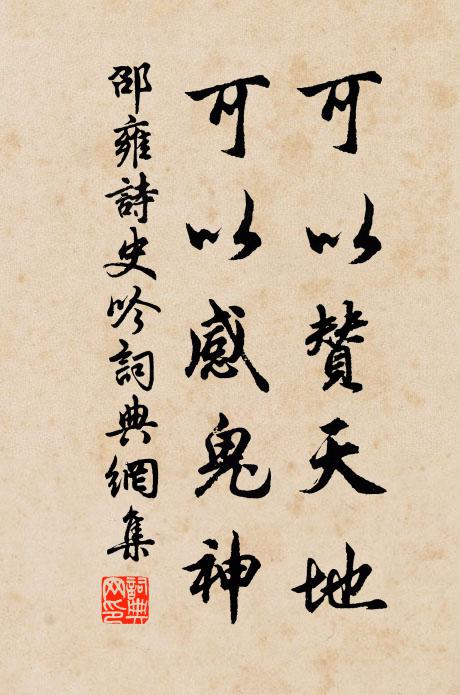 可以贊天地
可以感鬼神
邵雍詩史吟詞典網集
詞典網印